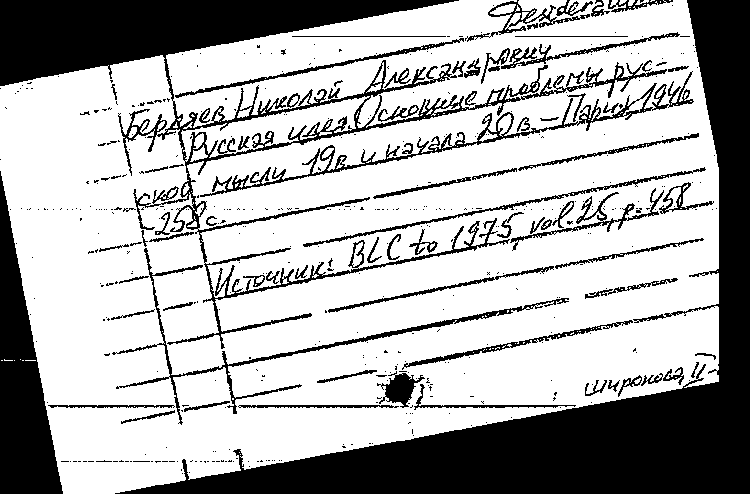 Desiderata
Бердяев, Николай Александрович
Русская идея. Основные проблемы рус-
ской мысли 19в. и начала 20в. - Париж, 1946
- 258с.
Источник: BLC to 1975, vol. 25, p. 458
Широкова, II-